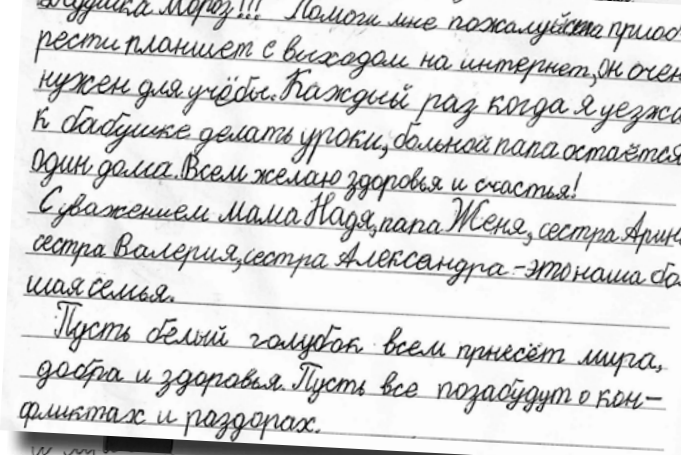 Дедушка Мороз!!! Помоги мне пожалуйста приоб
рести планшет с выходом на интернет, он очен
нужен для учёбы. Каждый раз когда я уезжа
к бабушке делать уроки, больной папа остаётся
один дома. Всем желаю здоровья и счастья!
С уважением мама Надя, папа Женя, сестра Арин
сестра Валерия, сестра Александра - это наша бо
шая семья.
Пусть белый голубок всем принесёт мира,
добра и здоровья. Пусть все позабудут о кон-
фликтах и раздорах.